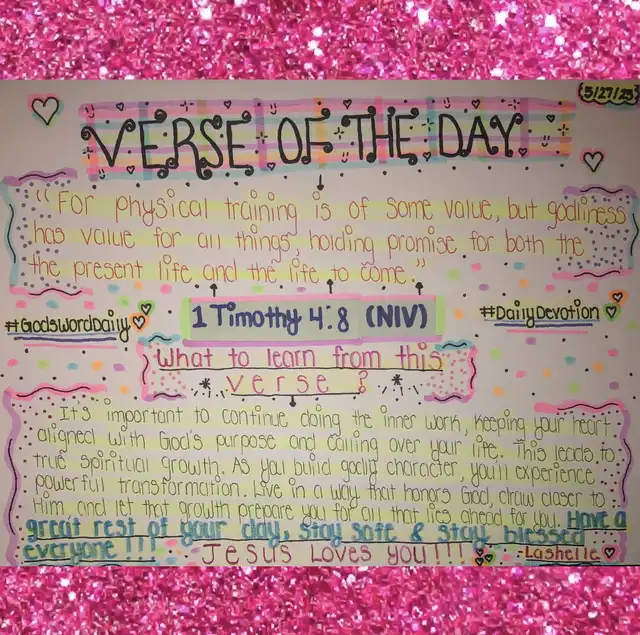 5/27/25
VERSE OF THE DAY
"For physical training is of some value, but godliness
has value for all things, holding promise for both the
the present life and the life to come."
#GodsWordDaily
1 Timothy 4:8 (NIV)
#DailyDevotion
What to learn from this
verse?
It's important to continue doing the inner work, keeping your heart
aligned with God's purpose and calling over your life. This leads to
true spiritual growth. As you build godly character, you'll experience
powerful transformation. Live in a way that honors God, draw closer to
Him and let that growth prepare you for all that lies ahead for you. Have a
great rest of your day, stay safe & stay blessed
everyone!!! Jesus Loves you!!!! -Lashelle